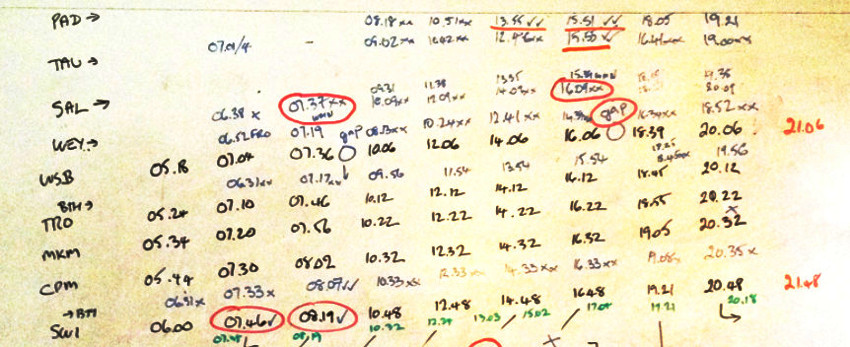 PAD → 08.18 xx 10.51 xx 13.55 ✓✓ 15.51 ✓✓ 18.05 19.21
07.01/4 - 09.02 xx 12.46 xx 15.50 ✓ 19.00 xx
TAU →
11.38 13.35 19.35
SAL → 06.38 x 07.37 xx 10.09 xx 12.09 xx 14.09 xx 16.09 xx 20.09
06.52 FRO 07.19 gap 10.24 xx 12.41 xx gap 16.34 xx 18.52 xx
WEY → 07.04 07.36 10.06 12.06 14.06 16.06 18.39 20.06 21.06
WSB 05.18 06.31 xx 07.17 xx 09.56 11.54 13.54 15.54 19.56
BTH → 07.10 07.46 10.12 12.12 14.12 16.12 18.45 20.12
TRO 05.24 07.20 07.56 10.22 12.22 14.22 16.22 18.55 20.22
MKM 05.34 07.30 08.02 10.32 12.32 14.32 16.32 19.05 20.32
CPM 05.44 07.33 x 08.07 ✓✓ 10.33 xx 12.33 xx 14.33 xx 16.33 xx 20.35 x
→ BTH 06.31 x
SWI 06.00 07.46 ✓ 08.19 ✓ 10.48 12.48 14.48 16.48 19.21 20.48 21.48
08.19 10.32 13.03 15.02 17.04 19.21 20.18